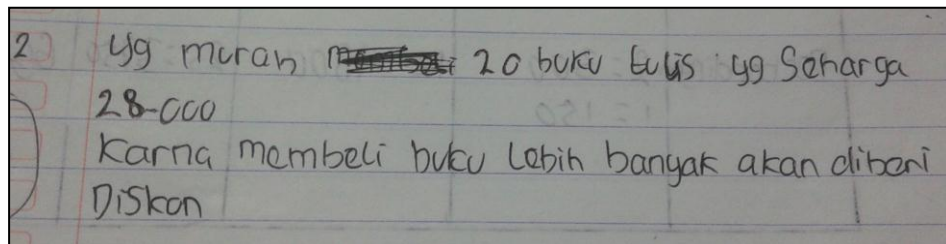 2 yg murah 20 buku tulis yg seharga
28-000
Karna membeli buku lebih banyak akan diberi
Diskon